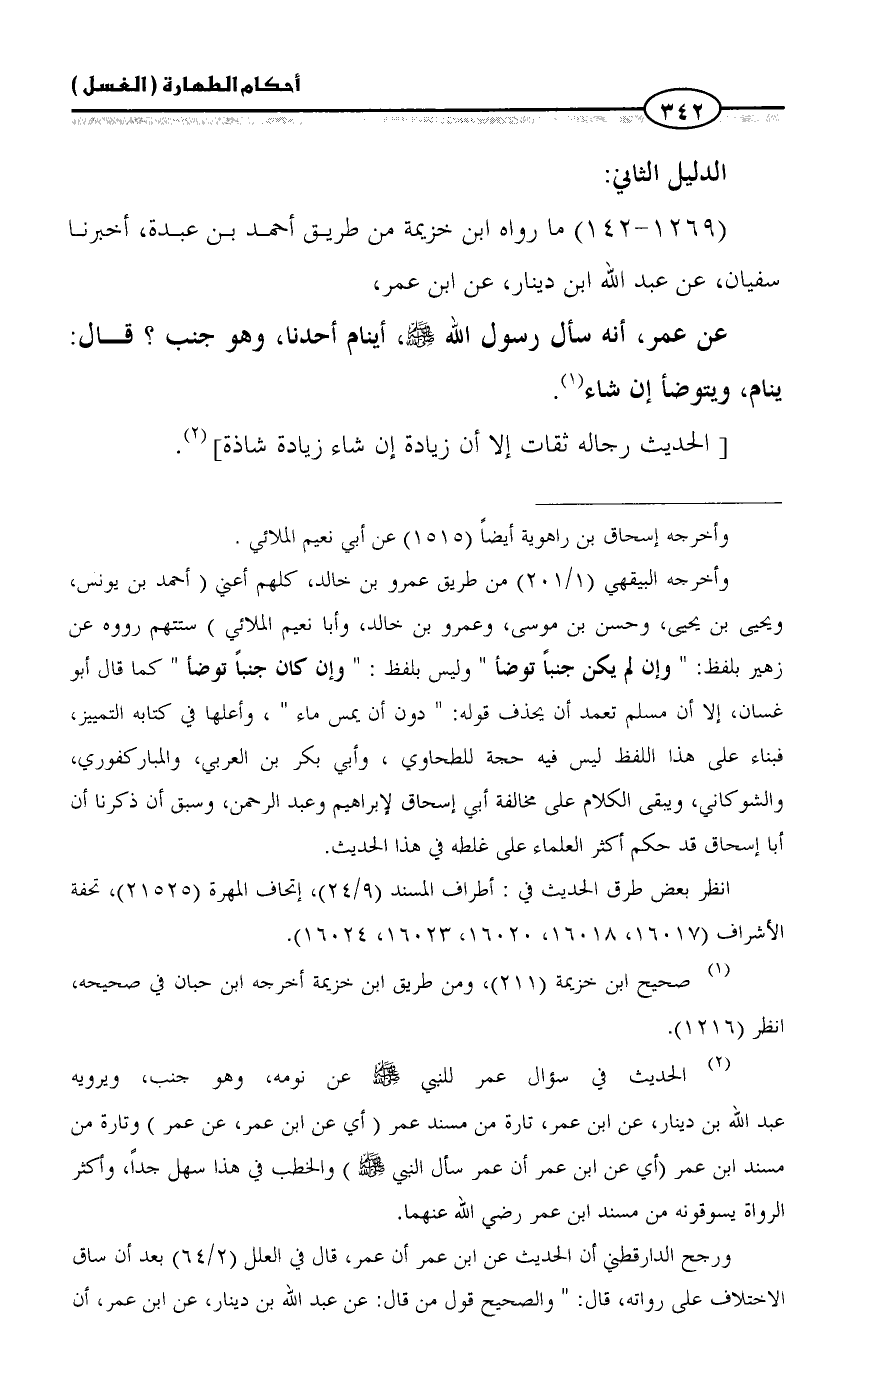 أحكام الطهارة (الغسل)
٣٤٢
الدليل الثاني:
(١٢٦٩-١٤٢) ما رواه ابن خزيمة من طريق أحمد بن عبدة، أخبرنا
سفيان، عن عبد الله ابن دينار، عن ابن عمر،
عن عمر، أنه سأل رسول الله ﷺ، أينام أحدنا، وهو جنب ؟ قال:
ينام، ويتوضأ إن شاء(١).
[ الحديث رجاله ثقات إلا أن زيادة إن شاء زيادة شاذة](٢).
وأخرجه إسحاق بن راهوية أيضاً (١٥١٥) عن أبي نعيم الملائي .
وأخرجه البيهقي (٢٠١/١) من طريق عمرو بن خالد، كلهم أعني ( أحمد بن يونس،
ويحيى بن يحيى، وحسن بن موسى، وعمرو بن خالد، وأبا نعيم الملائي ) ستتهم رووه عن
زهير بلفظ: " وإن لم يكن جنباً توضأ " وليس بلفظ : " وإن كان جنباً توضأ " كما قال أبو
غسان، إلا أن مسلم تعمد أن يحذف قوله: " دون أن يمس ماء " ، وأعلها في كتابه التمييز،
فبناء على هذا اللفظ ليس فيه حجة للطحاوي ، وأبي بكر بن العربي، والمباركفوري،
والشوكاني، ويبقى الكلام على مخالفة أبي إسحاق لإبراهيم وعبد الرحمن، وسبق أن ذكرنا أن
أبا إسحاق قد حكم أكثر العلماء على غلطه في هذا الحديث.
انظر بعض طرق الحديث في : أطراف المسند (٢٤/٩)، إتحاف المهرة (٢١٥٢٥)، تحفة
الأشراف (١٦٠١٧، ١٦٠١٨، ١٦٠٢٠، ١٦٠٢٣، ١٦٠٢٤).
(١) صحيح ابن خزيمة (٢١١)، ومن طريق ابن خزيمة أخرجه ابن حبان في صحيحه،
انظر (١٢١٦).
(٢) الحديث في سؤال عمر للنبي ﷺ عن نومه، وهو جنب، ويرويه
عبد الله بن دينار، عن ابن عمر، تارة من مسند عمر ( أي عن ابن عمر، عن عمر ) وتارة من
مسند ابن عمر (أي عن ابن عمر أن عمر سأل النبي ﷺ ) والخطب في هذا سهل جداً، وأكثر
الرواة يسوقونه من مسند ابن عمر رضي الله عنهما.
ورجح الدارقطني أن الحديث عن ابن عمر أن عمر، قال في العلل (٦٤/٢) بعد أن ساق
الاختلاف على رواته، قال: " والصحيح قول من قال: عن عبد الله بن دينار، عن ابن عمر، أن